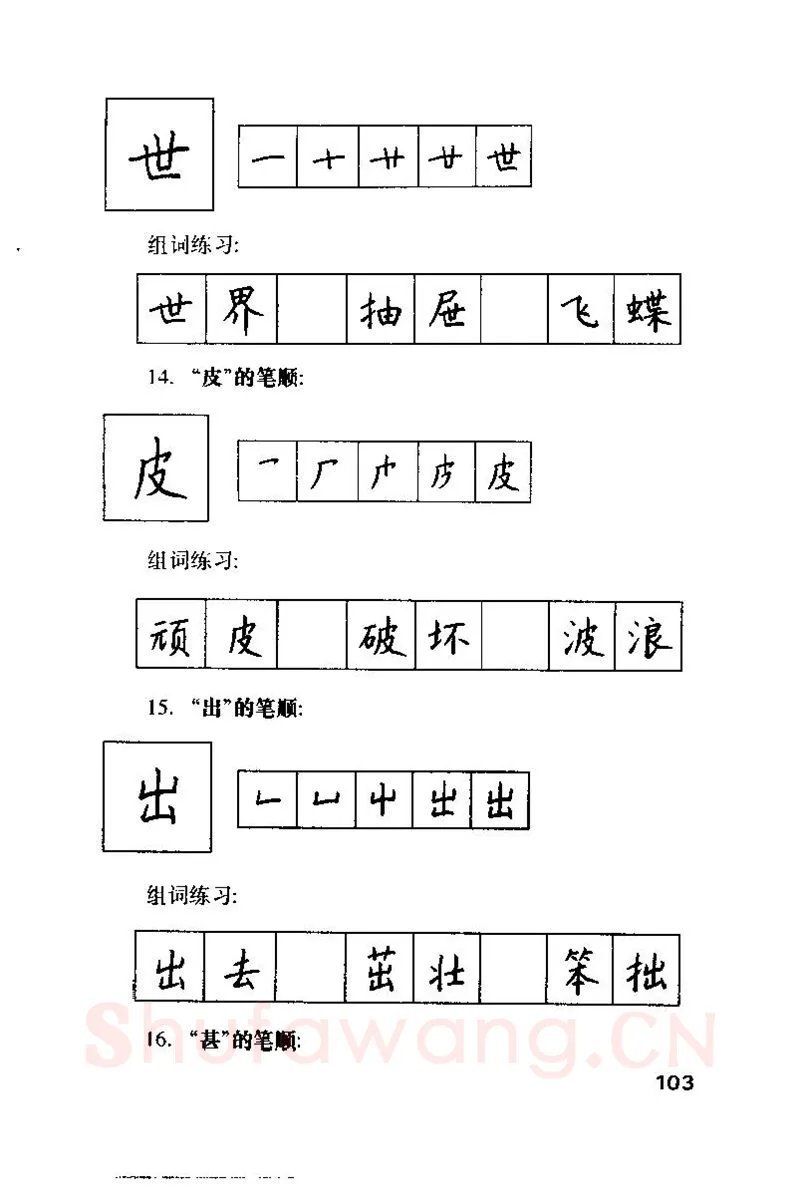 世 一 十 卄 廿 世
组词练习:
世界 抽屉 飞蝶
14. “皮”的笔顺:
皮 ㇇ 厂 皮
组词练习:
顽皮 破坏 波浪
15. “出”的笔顺:
出 ㇄ 凵 屮 出 出
组词练习:
出去 茁壮 笨拙
16. “甚”的笔顺:
Shufawang.CN
103